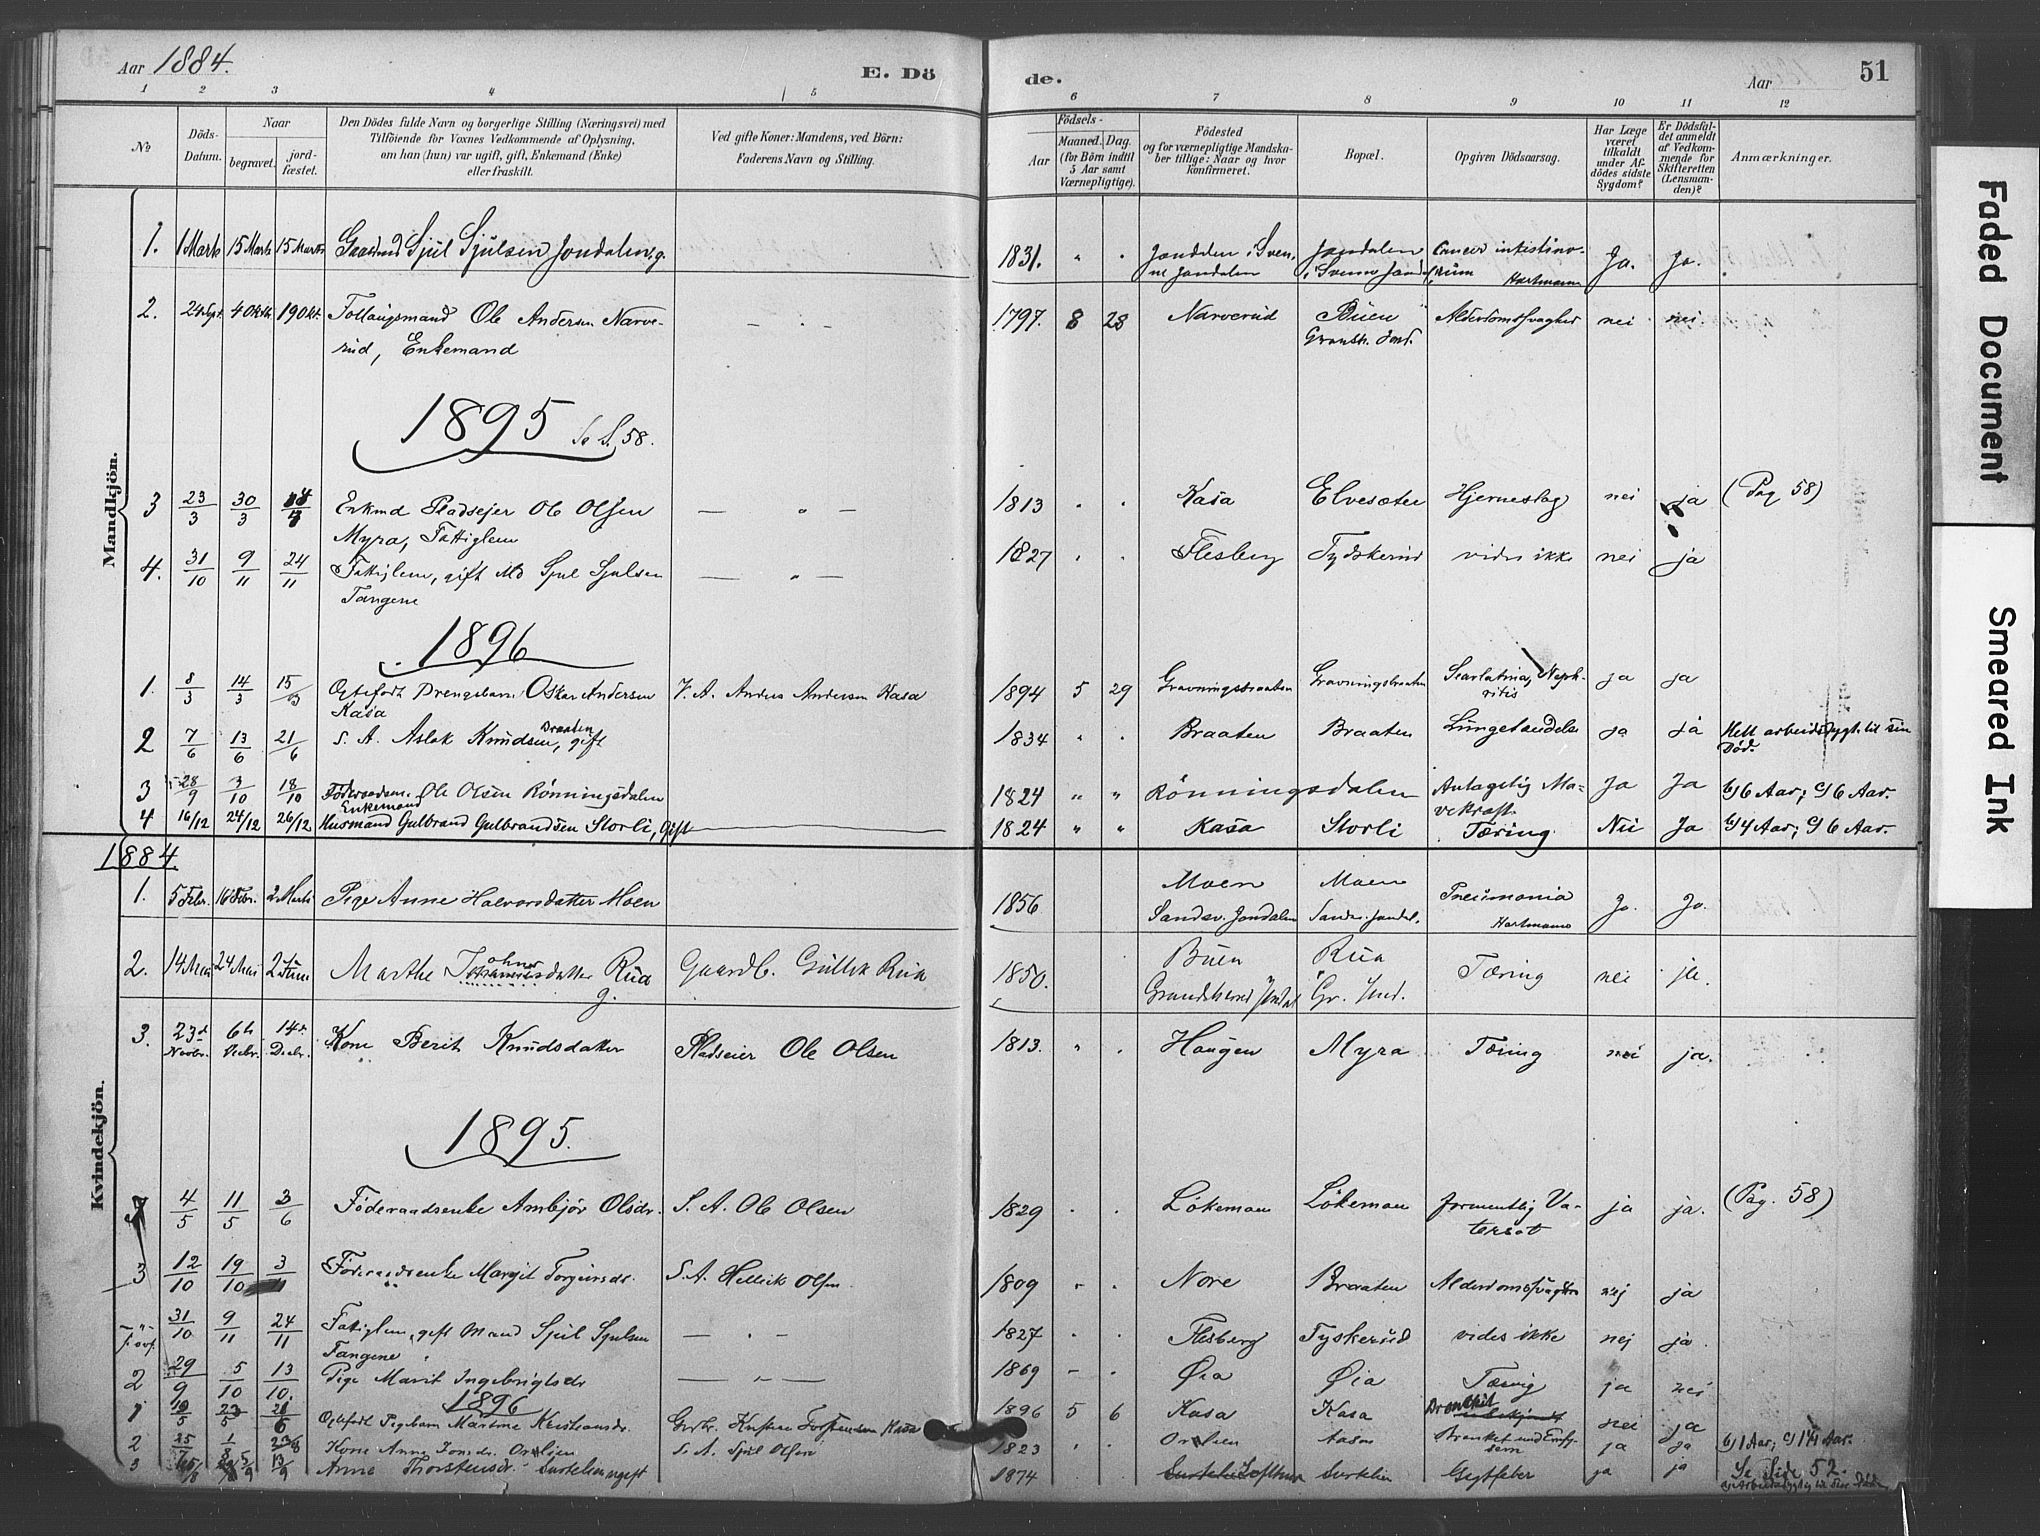 Aar 1884.
E. Dö
de.
Aar
51
1 2 3 4 5 6 7 8 9 10 11 12
No
Döds-
Datum.
Naar
begravet.
jord-
fæstet.
Den Dödes fulde Navn og borgerlige Stilling (Næringsvei) med
Tilföiende for Voxnes Vedkommende af Oplysning,
om han (hun) var ugift, gift, Enkemand (Enke)
eller fraskilt.
Ved gifte Koner: Mandens, ved Börn:
Faderens Navn og Stilling.
Födsels-
Aar
Maaned. Dag.
(for Börn indtil
5 Aar samt
Værnepligtige).
Födested
og for værnepligtige Mandska-
ber tillige: Naar og hvor
konfirmeret.
Bopæl.
Opgiven Dödsaarsag.
Har Læge
været
tilkaldt
under Af-
dödes sidste
Sygdom?
Er Dödsfal-
det anmeldt
af Vedkom-
mende for
Skifteretten
(Lensman-
den)?
Anmærkninger.
Mandkjön.
1. 1 Marts 15 Marts 15 Marts Gaardmd Sjul Sjulsen Jondalen, g. 1831. " . Jondalen i Sven- Jondalen Cancer intestino- Ja. Ja.
ne Jondalen i Svenne Jond. rum Hartmann
2. 24 Spt. 4 Oktb. 19 Okt. Follaugsmand Ole Andersen Narve- — . — 1797. 8 28 Narverud Buen Alderdomssvaghed nei nei.
rud, Enkemand Gransh. Jond.
1895 Se S. 58.
3 23/3 30/3 14/4 Enkmd Pladsejer Ole Olsen — " — 1813 . . Kasa Elvesæter Hjerneslag nei ja (Pag 58)
Myra, Fattiglem
4. 31/10 9/11 24/11 Fattiglem, gift Md Sjul Sjulsen — " — 1827 . . Flesberg Tydskerud vides ikke nei ja
Tangene
1896
1. 8/3 14/3 15/3 Ogtefødt Drengebarn Oskar Andersen F. A. Anders Andersen Kasa 1894 5 29 Gravningsbraaten Gravningsbraaten Scarlatina, Neph- ja ja
Kasa ritis
2 7/6 13/6 21/6 S. A. Aslak Knudsen Braaten, gift 1834 . . Braaten Braaten Lungebetændelse ja ja Helt arbeidsdygt. til sin
Død.
3 28/9 3/10 18/10 Föderaadsm. Ole Olsen Rønningsdalen 1824 " " Rønningsdalen Antagelig Ma- Ja Ja b) 6 Aar; c) 6 Aar.
Enkemand vekræft
4 16/12 24/12 26/12 Husmand Gulbrand Gulbrandsen Storli, gift 1824 " " Kasa Storli Tæring Nei Ja b) 4 Aar; c) 6 Aar.
1884.
Kvindekjön.
1. 5 Febr. 16 Febr. 2 Marts Pige Anne Halvorsdatter Moen 1856 Moen Moen Pneumonia Ja. Ja.
Sandsv. Jondalen Sandsv. Jondal. Hartmann
2. 14 Mai 24 Mai 2 Juni Marthe Johannesdatter Rua Gaardb. Gullik Rua 1850. Buen Rua Tæring nei ja.
g. Grandsherred Jondal Gr. Jond.
3. 23d 6te 14de Kone Berit Knudsdatter Pladseier Ole Olsen 1813. " . Haugen Myra Tæring nei ja.
Novbr. Decbr. Decbr.
1895.
1 4/5 11/5 3/6 Föderaadsenke Ambjør Olsdr. S. A. Ole Olsen 1829 . . Lökemoen Lökemoen formentlig Va- ja ja. (Pag. 58)
tersot
3 12/10 19/10 3/11 Föderaadsenke Margit Torgersdr. S. A. Hellik Olsen 1809 - . Nore Braaten Alderdomssvaghed nej ja
— " — 31/10 9/11 24/11 Fattiglem, gift Mand Sjul Sjulsen — . — 1827 . . Flesberg Tyskerud vides ikke nej ja.
Tangene
2 29/9 5/10 13/10. Pige Marit Ingebrigtsdr — " — 1869 - . Øia Øia Tæring ja nei
1896
1 10/5 23/5 28/6 Ogtefødt Pigebarn Martine Kristiansdr. Gbr. Kristian Torstensen Kasa 1896 5 6 Kasa Kasa Bronchit nei ja
2 25/7 1/8 23/8 Kone Anne Jonsdr. Orelien S. A. Sjul Olsen 1823 . . Orelien Aasen Bronket und Emfy- ja ja b) 1 Aar; c) 1 1/4 Aar.
sem
3 5/9 13/9 Anne Thorstensdr. Surtelien ugift 1874 Surtelien Gigtfeber ja ja Se Side 52.
Faded Document
Smeared Ink